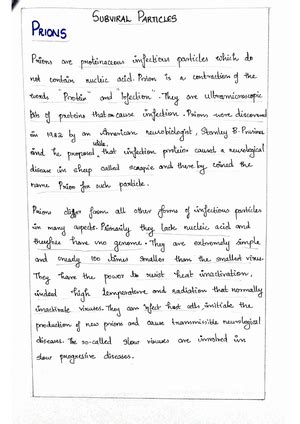 SUBVIRAL PARTICLES
PRIONS
Prions are proteinaceous infectious particles which do
not contain nucleic acid. Prion is a contraction of the
words "Protein" and "Infection". They are ultramicroscopic
bits of proteins that can cause infection. Prions were discovered
in 1982 by an American neurobiologist, Stanley B. Prusiner
and he proposed that infection proteins caused a neurological
disease in sheep called scrapie and thereby coined the
name Prion for such particle.
Prions differ from all other forms of infectious particles
in many aspects. Primarily they lack nucleic acid and
therefore have no genome. They are extremely simple
and nearly 100 times smaller than the smallest virus.
They have the power to resist heat inactivation,
indeed high temperature and radiation that normally
inactivate viruses. They can infect host cells, initiate the
production of new prions and cause transmissible neurological
diseases. The so-called slow viruses are involved in
slow progressive diseases.